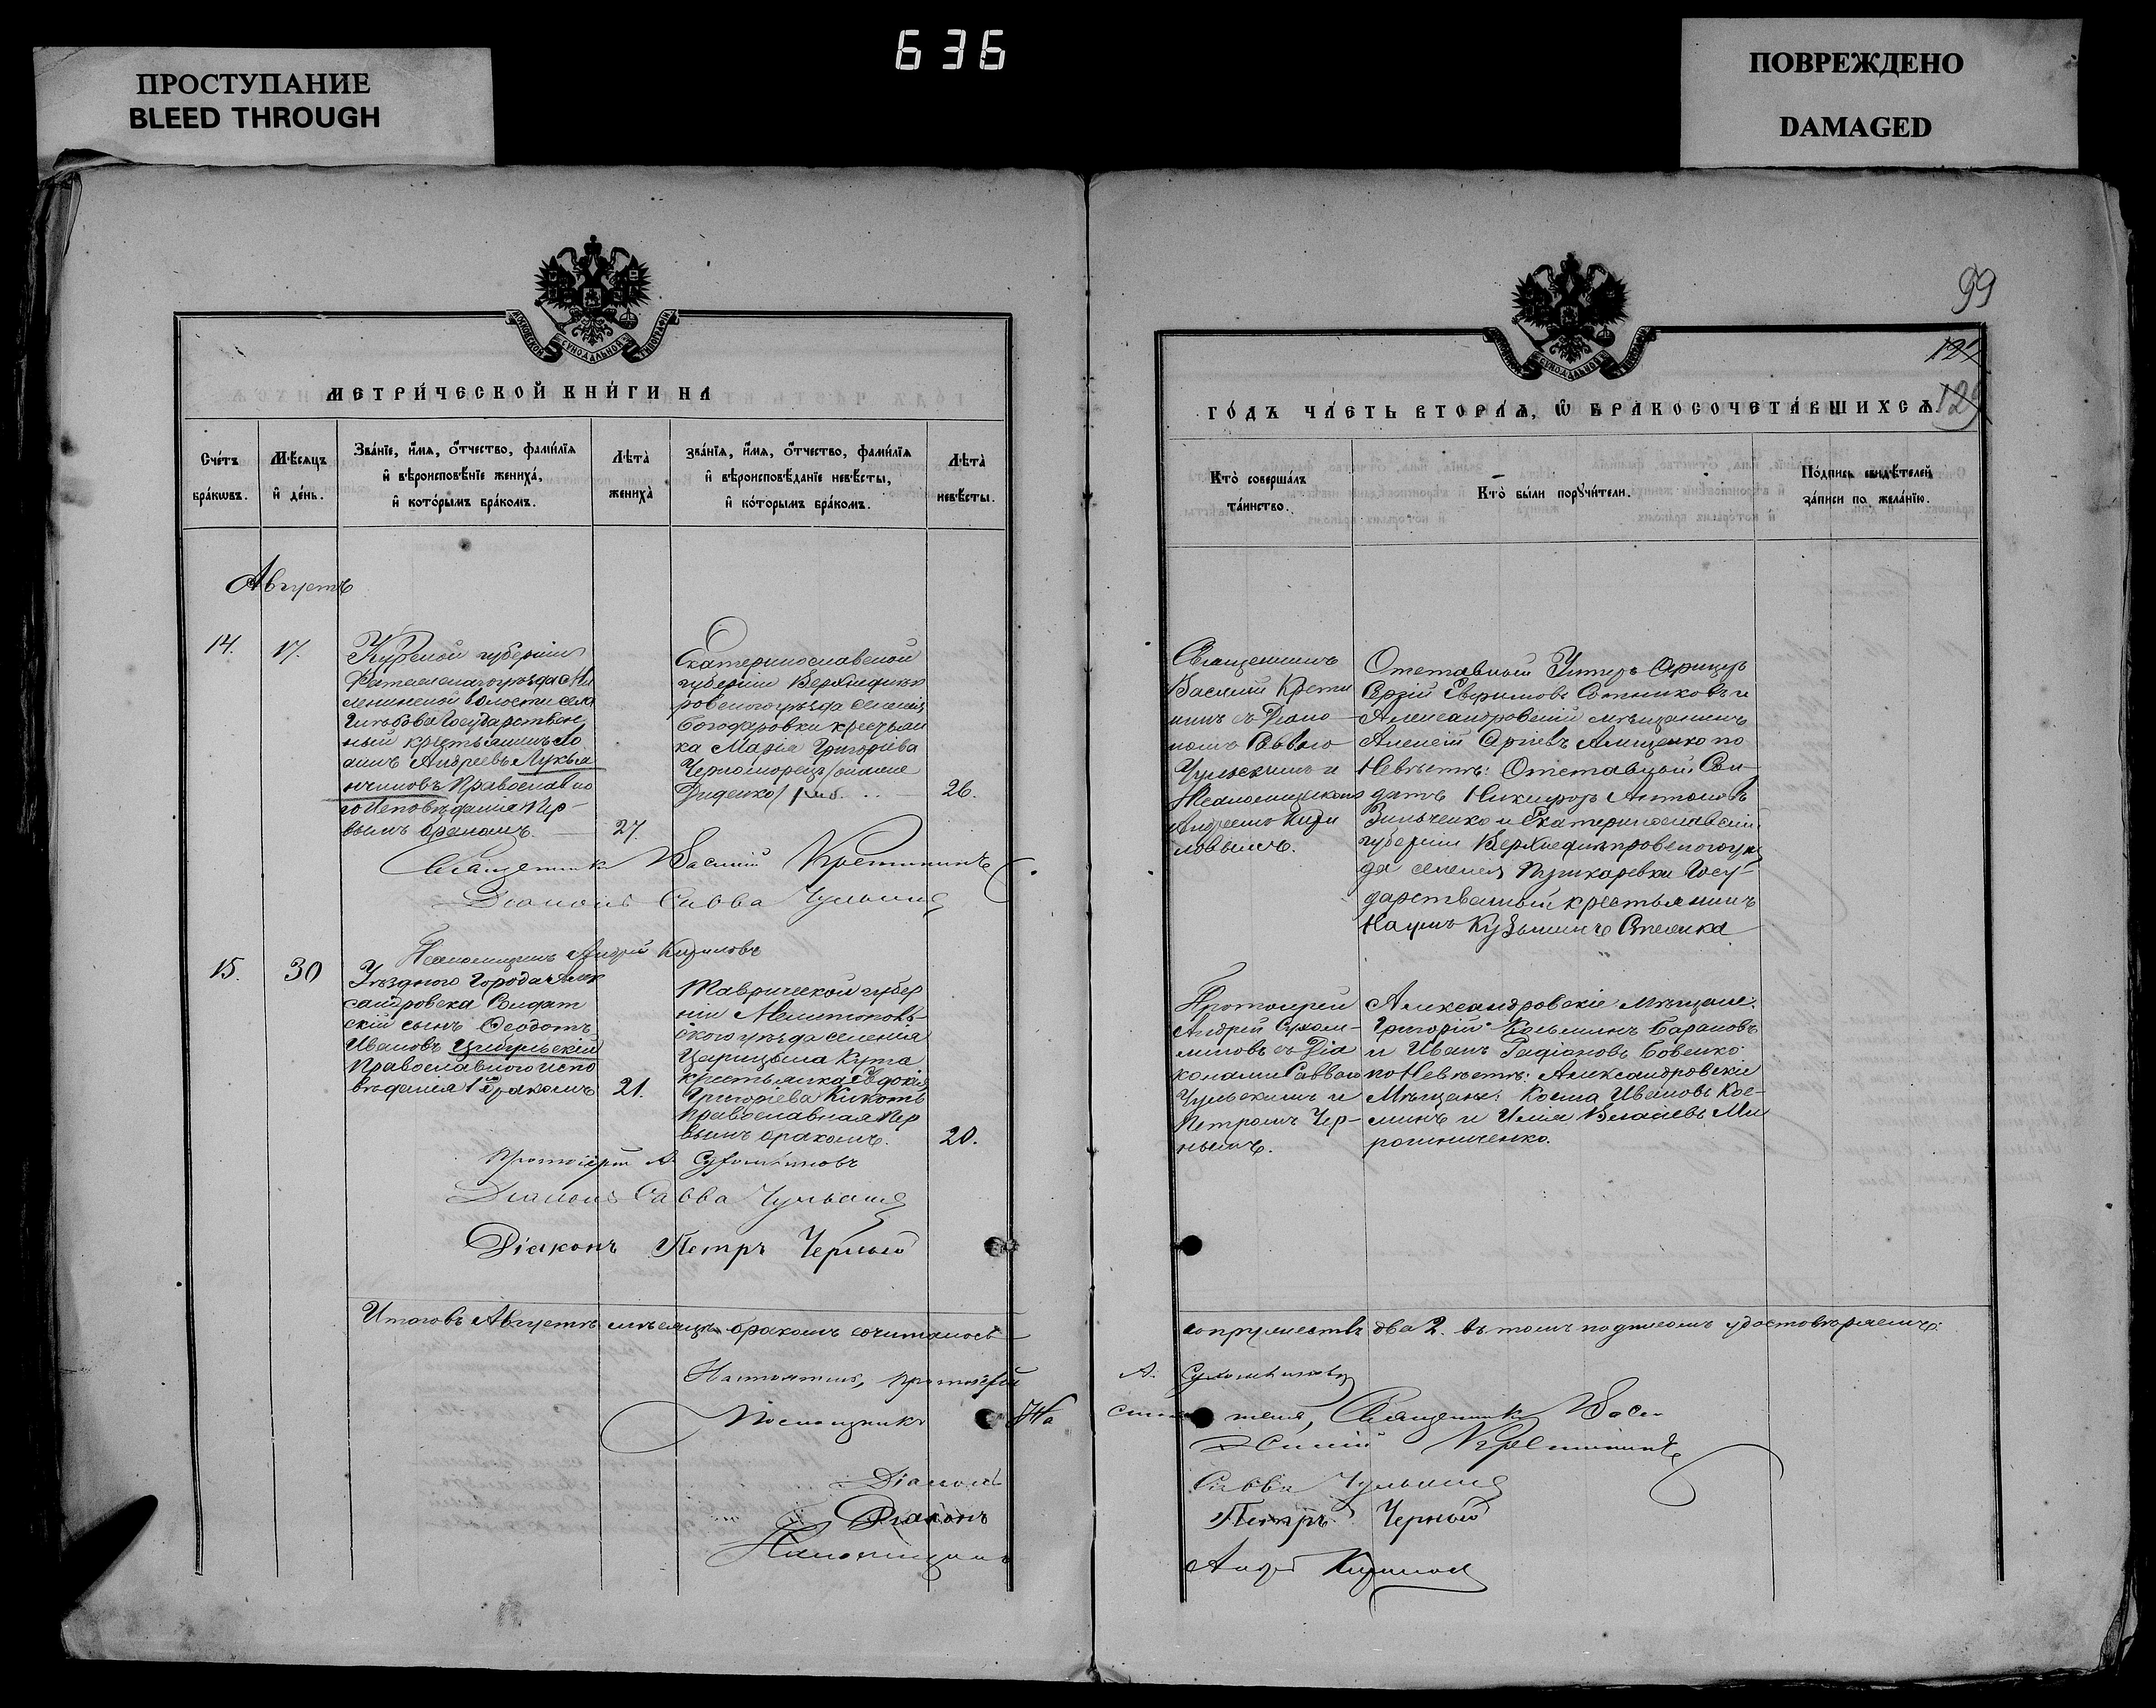 636
ПРОСТУПАНИЕ
BLEED THROUGH
ПОВРЕЖДЕНО
DAMAGED
МОСКОВСКОЙ СѴНОДАЛЬНОЙ ТИПОГРАФІИ
МЕТРИ́ЧЕСКОЙ КНИ́ГИ НА
Сче́тъ бра́кѡвъ.
Мѣ́сяцъ и҆ де́нь.
Зва́нїе, и҆́мя, ѻ҆́тчество, фами́лїя
и҆ вѣроисповѣ́нїе жениха́,
и҆ кото́рымъ бра́комъ.
Лѣта̀ жениха̀
зва́нїя, и҆́мя, ѻ҆́тчество, фами́лїя
и҆ вѣроисповѣ́данїе невѣ́сты,
и҆ ко́торымъ бра́комъ.
Лѣта̀ невѣ́сты.
Августъ
14.
17.
Курской губерніи
Фатежскаго уѣзда
волости села
Государствен
ный крестьянинъ
Андреевъ Лукья
нчиковъ Православна
го Исповѣданія Пер-
вымъ бракомъ.
27.
Екатеринославской
губерніи Верхнеднѣп
ровскаго уѣзда селенія
Богодаровки крестьян
ка Марія Григоріева
Черноморецъ
Диденко
26.
Священникъ Василий Кретининъ
Діаконъ Савва Чульскій
Псаломщикъ Андрей Кириловъ
15.
30
Уѣзднаго города Алек
сандровска Солдат
скій сынъ Ѳеодотъ
Ивановъ Цибульскій
Православнаго испо
вѣданія 1мъ бракомъ
21.
Таврической губер
ніи Мелитополь-
скаго уѣзда селенія
Царицына Кута
крестьянка Евдокія
Григоріева Кикоть
Православная Пер
вымъ бракомъ.
20.
Протоіерей А. Сухомлиновъ
Діаконъ Савва Чульскій
Діаконъ Петръ Черный
Итого въ Августѣ мѣсяцѣ бракомъ сочиталось
Настоятель, протоіерей
Помощникъ На
Діаконъ
Діаконъ
Псаломщикъ
99
121
129
МОСКОВСКОЙ СѴНОДАЛЬНОЙ ТИПОГРАФІИ
ГО́ДЪ ЧА́СТЬ ВТОРА́Я, Ѡ҆ БРАКОСОЧЕТА́ВШИХСЯ.
Кто̀ соверша́лъ та́инство.
Кто̀ бы́ли порꙋчи́тели.
По́дпись свидѣ́телей
за́писи по жела́нїю.
Священникъ
Василій Крети
нинъ съ Діако
номъ Саввою
Чульскимъ и
Псаломщикомъ
Андреемъ Кири
ловымъ.
Отставный Унтеръ Офицеръ
Сергій Ефримовъ Сотниковъ и
Александровскій мѣщанинъ
Алексій Алещенко по
Невѣстѣ: Отставной Сол-
датъ Никифоръ Антоновъ
Зинченко и Екатеринославской
губерніи Верхнеднѣпровскаго уѣз
да селенія Пушкаревки Госу-
дарственный крестьянинъ
Наумъ Кузьминъ
Протоіерей
Андрей Сухом-
линовъ съ Діа
конами Саввою
Чульскимъ и
Петромъ Чер-
нымъ.
Александровскіе мѣщане
Григорій Козьминъ Барановъ
и Иванъ Бовенко
по Невѣстѣ: Александровскіе
Мѣщане: Косма Ивановъ Кос-
минъ и Илія Власіевъ Ми
рошниченко.
сопружествъ два 2. въ томъ подписомъ удостовѣряемъ:
А. Сухомлиновъ
стоятеля, Священникъ Васи
лий Кретининъ
Савва Чульскій
Петръ Черный
Андрей Кириловъ